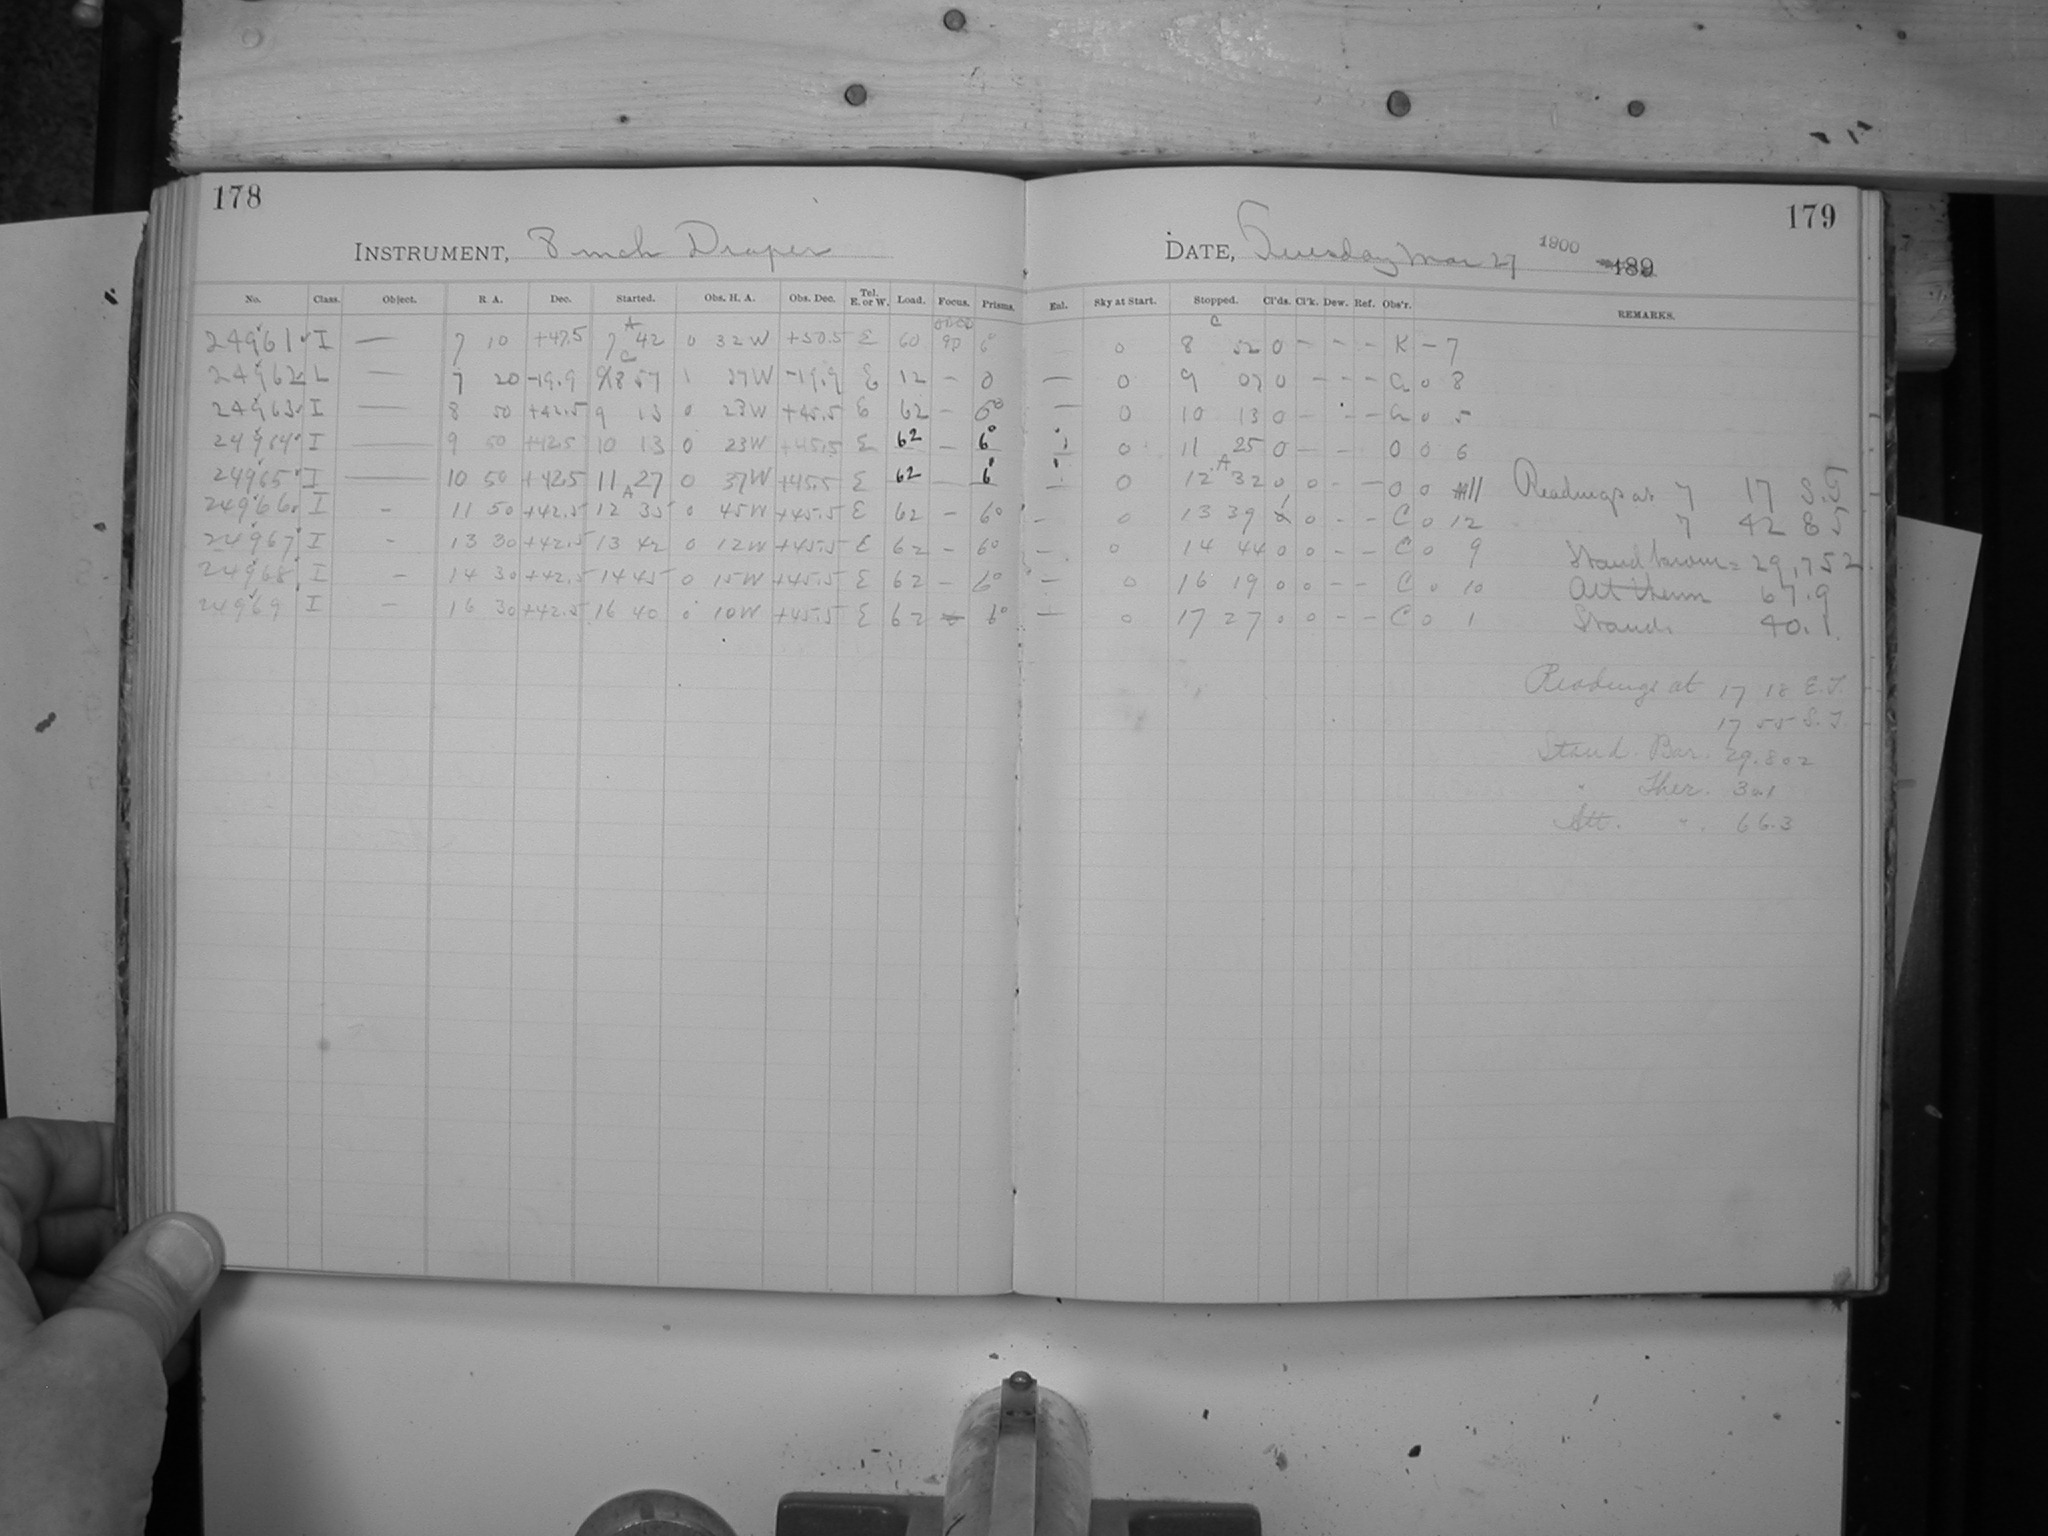 178
179
INSTRUMENT, 8 inch Draper
DATE, Tuesday Mar 27 1900 189
No. Class. Object. R. A. Dec. Started. Obs. H. A. Obs. Dec. Tel. E. or W. Load. Focus. Prisms. Enl. Sky at Start. Stopped. Cl'ds. Cl'k. Dew. Ref. Obs'r. REMARKS.
24961 I — 7 10 +47.5 7 A 42 0 32 W +50.5 E 60 90 6° 0 8 C 52 0 - - - K - 7
24962 L — 7 20 -19.9 8 C 57 1 37 W -19.9 E 12 - 0 — 0 9 07 0 - - - a 0 8
24963 I — 8 50 +42.5 9 13 0 23 W +45.5 E 62 - 6° — 0 10 13 0 - - - a 0 5
24964 I — 9 50 +42.5 10 13 0 23 W +45.5 E 62 - 6° — 0 11 25 0 - - - O 0 6
24965 I — 10 50 +42.5 11 27 0 37 W +45.5 E 62 — 6° — 0 12 A 32 0 0 - - O 0 11 Readings at 7 17 S.T
24966 I - 11 50 +42.5 12 A 35 0 45 W +45.5 E 62 - 6° - 0 13 39 1 0 - - C 0 12 7 42 8 5
24967 I - 13 30 +42.5 13 42 0 12 W +45.5 E 62 - 6° - 0 14 44 0 0 - - C 0 9 Stand barom = 29,752
24968 I - 14 30 +42.5 14 45 0 15 W +45.5 E 62 - 6° - 0 16 19 0 0 - - C 0 10 Att therm 67.9
24969 I - 16 30 +42.5 16 40 0 10 W +45.5 E 62 6° — 0 17 27 0 0 - - C 0 1 Stand. 40.1
Readings at 17 18 E.T.
17 55 S.T.
Stand. Bar. 29.802
" Ther. 30.1
Att. " 66.3